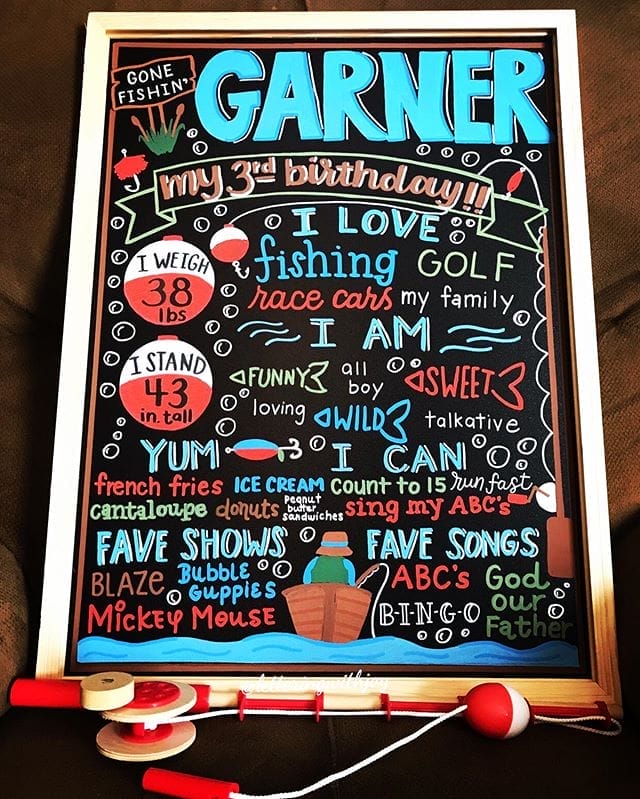 GONE
FISHIN'
GARNER
my 3rd birthday!!
I LOVE
fishing GOLF
race cars my family
I WEIGH
38
lbs
I AM
FUNNY all boy SWEET
loving WILD talkative
I STAND
43
in. tall
YUM
french fries ICE CREAM
cantaloupe donuts Peanut butter sandwiches
I CAN
count to 15 run fast
sing my ABC's
FAVE SHOWS
BLAZE Bubble Guppies
MICKEY MOUSE
FAVE SONGS
ABC's God our Father
B-I-N-G-O